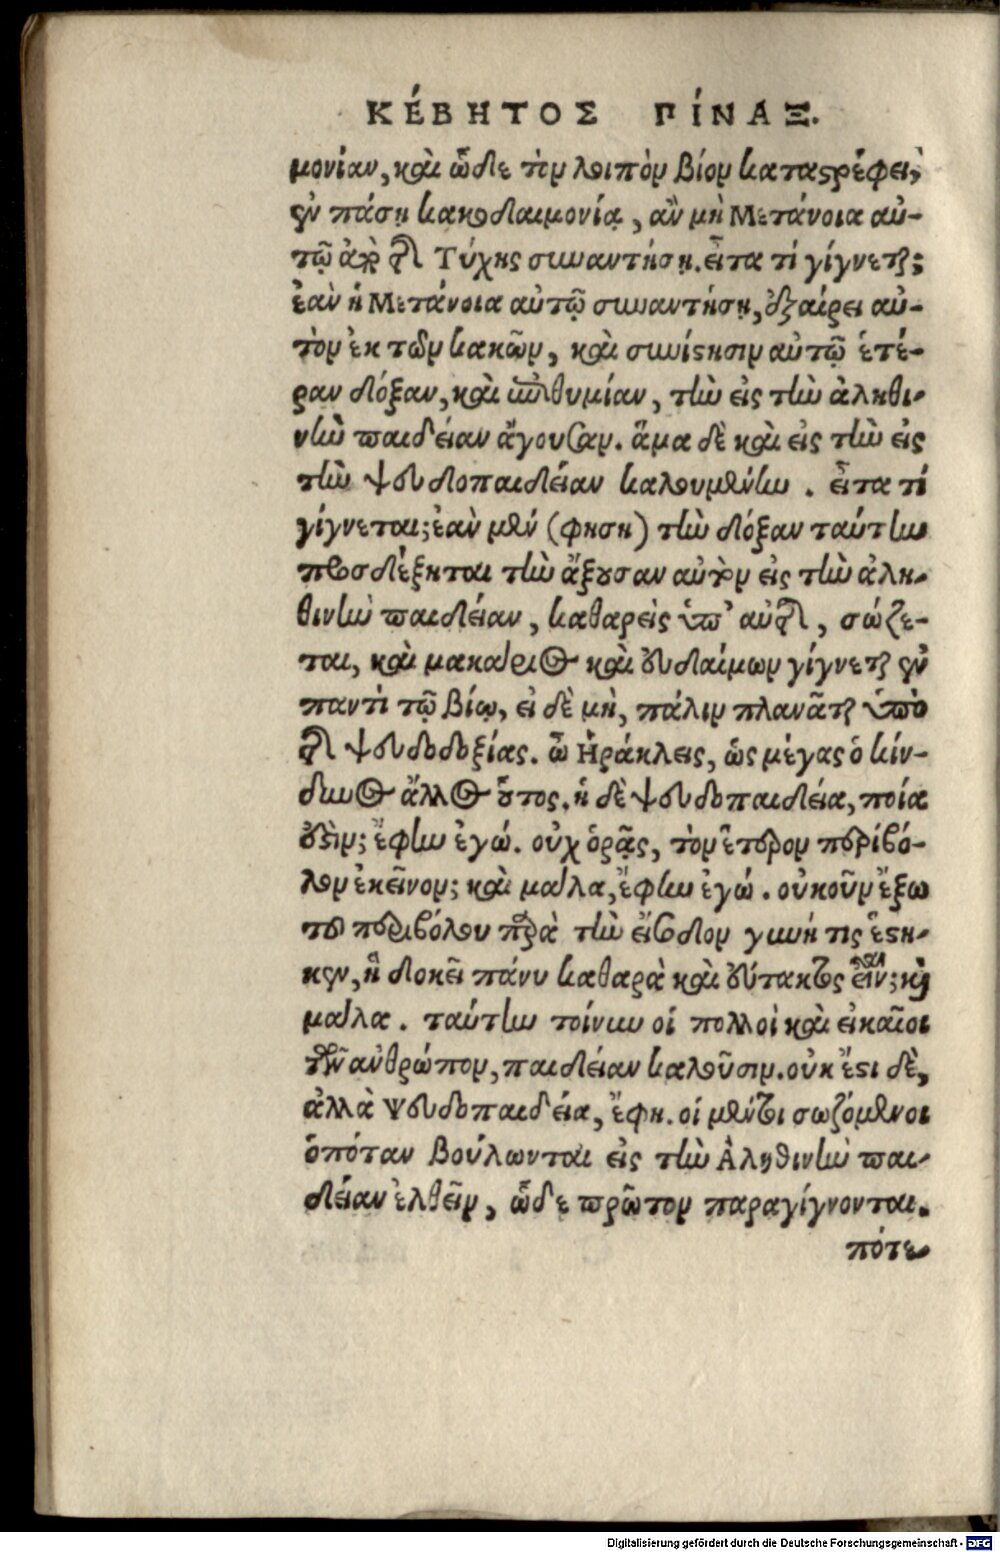 ΚΈΒΗΤΟΣ ΠΊΝΑΞ.
μονίαν, καὶ ὧδε τὸν λοιπὸν βίον καταστρέφει,
ἐν πάσῃ κακοδαιμονίᾳ, ἂν μὴ Μετάνοια αὐ-
τῷ ἀπὸ τῆς Τύχης συναντήσῃ. εἶτα τί γίγνεται;
ἐὰν ἡ Μετάνοια αὐτῷ συναντήσῃ, ἐξαίρει αὐ-
τὸν ἐκ τῶν κακῶν, καὶ συνίστησιν αὐτῷ ἑτέ-
ραν δόξαν, καὶ ἐπιθυμίαν, τὴν εἰς τὴν ἀληθι-
νὴν παιδείαν ἄγουσαν. ἅμα δὲ καὶ εἰς τὴν εἰς
τὴν ψευδοπαιδείαν καλουμένην. εἶτα τί
γίγνεται; ἐὰν μὲν (φηση) τὴν δόξαν ταύτην
προσδέξηται τὴν ἄξουσαν αὐτὸν εἰς τὴν ἀλη-
θινὴν παιδείαν, καθαρεὶς ὑπ' αὐτῆς, σώζε-
ται, καὶ μακάριος καὶ εὐδαίμων γίγνεται ἐν
παντὶ τῷ βίῳ, εἰ δὲ μὴ, πάλιν πλανᾶται ὑπὸ
τῆς ψευδοδοξίας. ὦ Ἡράκλεις, ὡς μέγας ὁ κίν-
δυνος ἄλλος οὗτος. ἡ δὲ ψευδοπαιδεία, ποία
ἐστὶν; ἔφην ἐγώ. οὐχ ὁρᾷς, τὸν ἕτερον περίβο-
λον ἐκεῖνον; καὶ μάλα, ἔφην ἐγώ. οὐκοῦν ἔξω
τοῦ περιβόλου παρὰ τὴν εἴσοδον γυνή τις ἕστη-
κεν, ἣ δοκεῖ πάνυ καθαρὰ καὶ εὔτακτος εἶναι; καὶ
μάλα. ταύτην τοίνυν οἱ πολλοὶ καὶ εἰκαῖοι
τῶν ἀνθρώπον, παιδείαν καλοῦσιν. οὐκ ἔστι δὲ,
ἀλλὰ ψευδοπαιδεία, ἔφη. οἱ μέντοι σωζόμενοι
ὁπόταν βούλωνται εἰς τὴν Ἀληθινὴν παι-
δείαν ἐλθεῖν, ὧδε πρῶτον παραγίγνονται.
πότε-
Digitalisierung gefördert durch die Deutsche Forschungsgemeinschaft - DFG